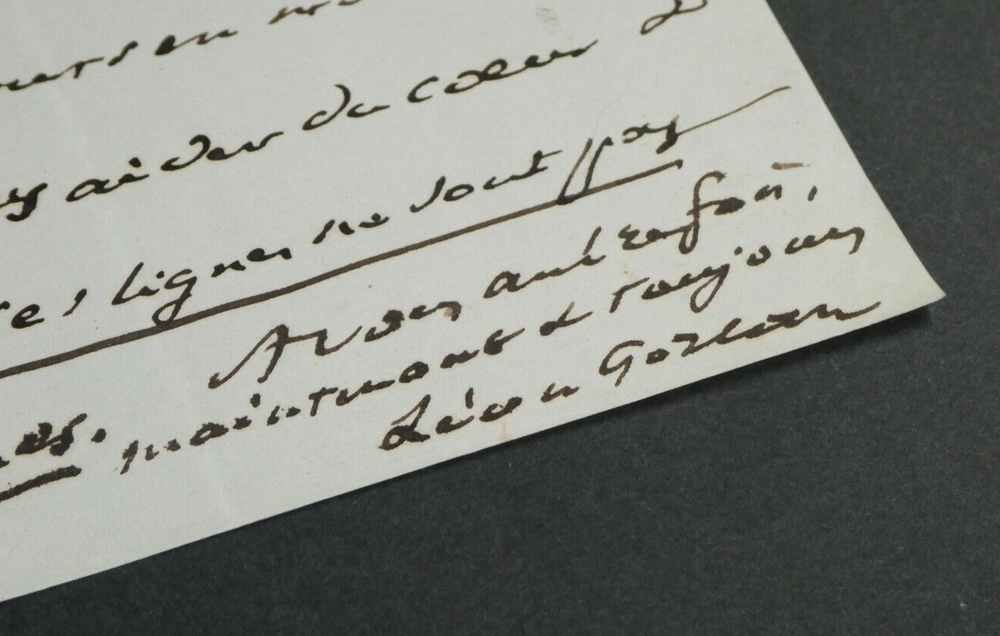 aider du cœur
lignes ne sont pas
A vous autrefois,
maintenant & toujours
Léon Gozlan